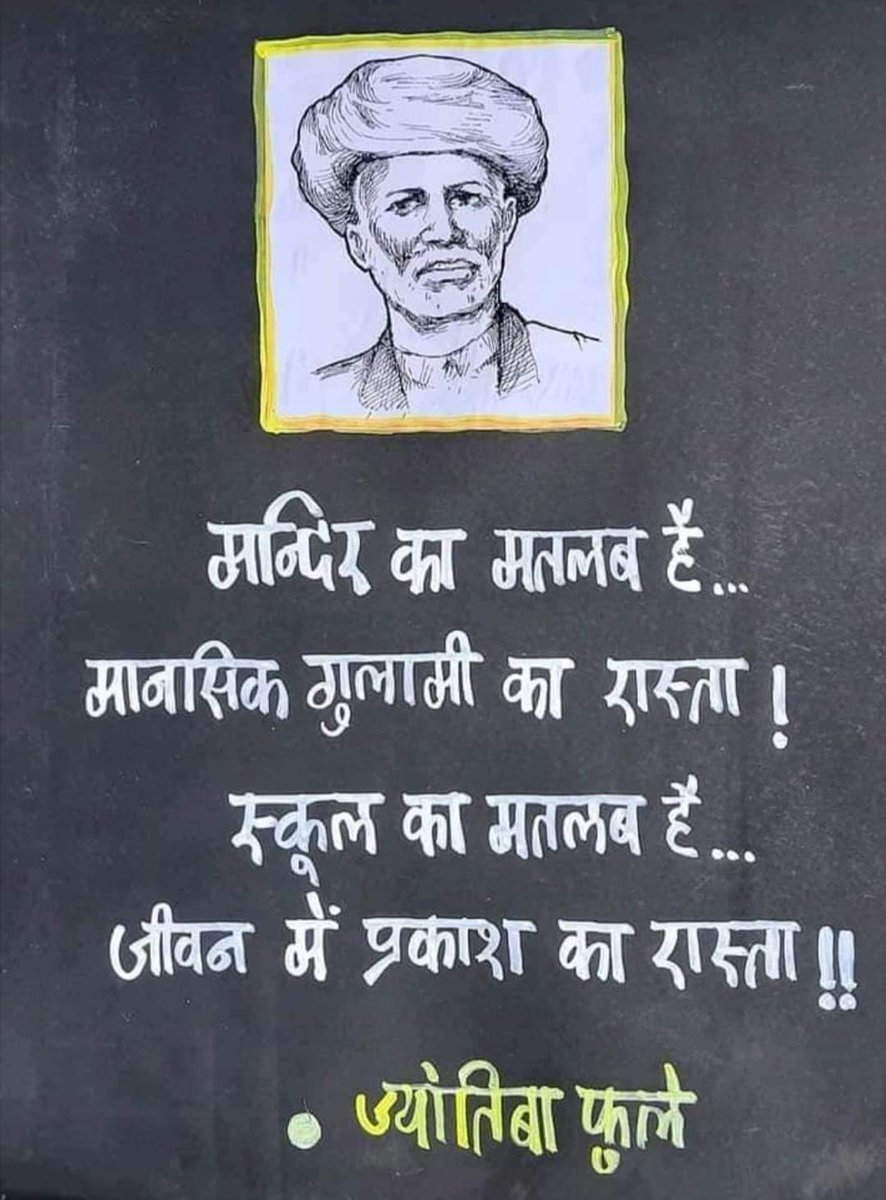 मन्दिर का मतलब है...
मानसिक गुलामी का रास्ता !
स्कूल का मतलब है...
जीवन में प्रकाश का रास्ता !!
• ज्योतिबा फुले